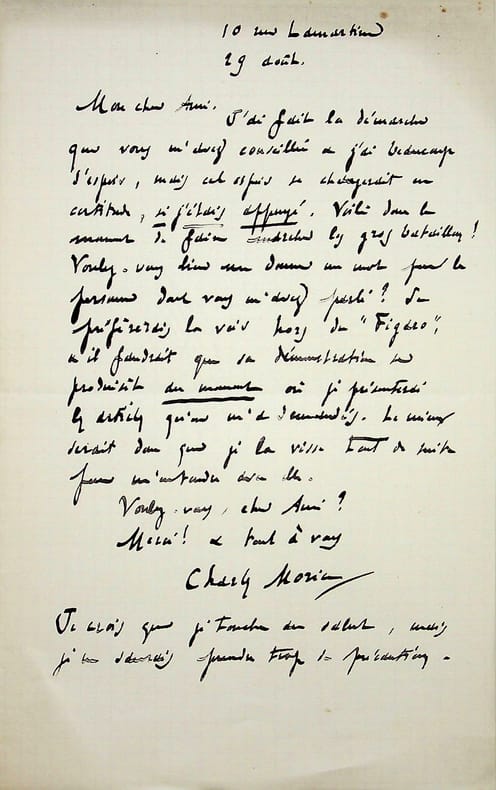 10 rue Lamartine
29 août.
Mon cher Ami.
J'ai fait la démarche
que vous m'avez conseillée & j'ai beaucoup
d'espoir, mais cet espoir se changerait en
certitude, si j'étais appuyé. Voilà donc le
moment de faire marcher les gros bataillons !
Voulez-vous bien me donner un mot pour la
personne dont vous m'avez parlé ? Je
préférerais la voir hors du "Figaro",
& il faudrait que sa démonstration se
produisît au moment où je présenterai
les articles qu'on m'a demandés. Le mieux
serait donc que je la visse tout de suite
pour m'entendre avec elle.
Voulez-vous, cher Ami ?
Merci ! & tout à vous
Charles Morice
Je crois que je touche au salut, mais
je ne saurais prendre trop de précautions.